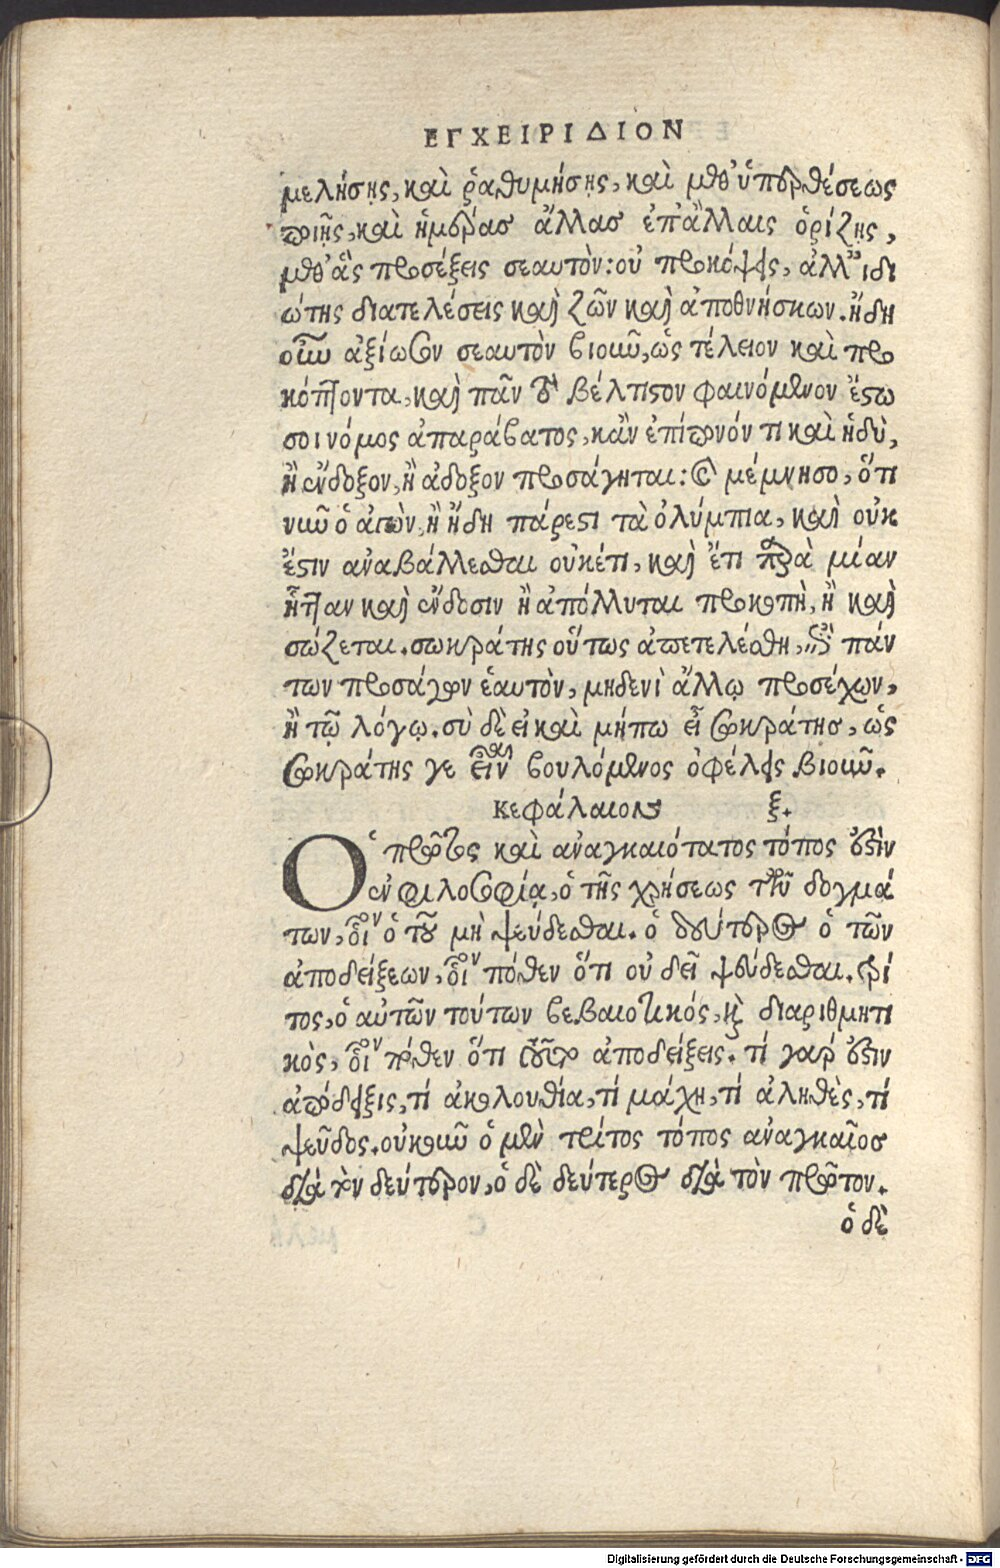 ΕΓΧΕΙΡΙΔΙΟΝ
μελήσῃς, καὶ ῥαθυμήσῃς, καὶ μεθ᾽ ὑπερθέσεως
ποιῇς, καὶ ἡμέρας ἄλλας ἐπ᾽ ἄλλαις ὁρίζῃς,
μεθ᾽ ἃς προσέξεις σεαυτόν: οὐ προκόψεις, ἀλλ᾽ ἰδι
ώτης διατελέσεις καὶ ζῶν καὶ ἀποθνήσκων. ἤδη
οὖν ἀξίωσον σεαυτὸν βιοῦν, ὡς τέλειον καὶ προ
κόπτοντα, καὶ πᾶν τὸ βέλτιστον φαινόμενον ἔστω
σοι νόμος ἀπαράβατος, κἂν ἐπίπονόν τι καὶ ἡδὺ,
ἢ ἔνδοξον, ἢ ἄδοξον προσάγηται: καὶ μέμνησο, ὅτι
νῦν ὁ ἀγὼν, ἢ ἤδη πάρεστι τὰ ὀλύμπια, καὶ οὐκ
ἔστιν ἀναβάλλεσθαι οὐκέτι, καὶ ἔτι παρὰ μίαν
ἧτταν καὶ ἔνδοσιν ἢ ἀπόλλυται προκοπὴ, ἢ καὶ
σώζεται. σωκράτης οὕτως ἀπετελέσθη, ἐπὶ πάν
των προσάγων ἑαυτὸν, μηδενὶ ἄλλῳ προσέχων,
ἢ τῷ λόγῳ. σὺ δὲ εἰ καὶ μήπω εἶ σωκράτης, ὡς
σωκράτης γε εἶναι βουλόμενος ὀφείλεις βιοῦν.
Κεφάλαιον ξ.
Ὁ πρῶτος καὶ ἀναγκαιότατος τόπος ἐστὶν
ἐν φιλοσοφίᾳ, ὁ τῆς χρήσεως τῶν δογμά
των, οἷον ὁ τοῦ μὴ ψεύδεσθαι. ὁ δεύτερος ὁ τῶν
ἀποδείξεων, οἷον πόθεν ὅτι οὐ δεῖ ψεύδεσθαι. τρί
τος, ὁ αὐτῶν τούτων βεβαιωτικός, καὶ διαριθμητι
κὸς, οἷον πόθεν ὅτι τοῦτο ἀποδείξεις. τί γαρ ἐστὶν
ἀπόδειξις, τί ἀκολουθία, τί μάχη, τί ἀληθὲς, τί
ψεῦδος. οὐκοῦν ὁ μὲν τρίτος τόπος ἀναγκαῖος
διὰ τὸν δεύτερον, ὁ δὲ δεύτερος διὰ τὸν πρῶτον.
ὁ δὲ
Digitalisierung gefördert durch die Deutsche Forschungsgemeinschaft - DFG